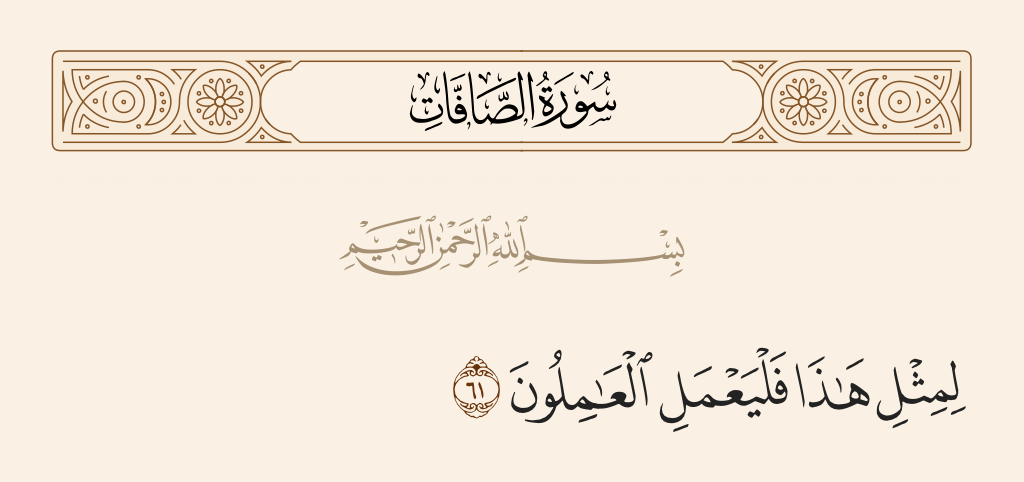 سُورَةُ الصَّافَّاتِ
بِسْمِ ٱللَّهِ ٱلرَّحْمَٰنِ ٱلرَّحِيمِ
لِمِثْلِ هَٰذَا فَلْيَعْمَلِ ٱلْعَٰمِلُونَ ٦١